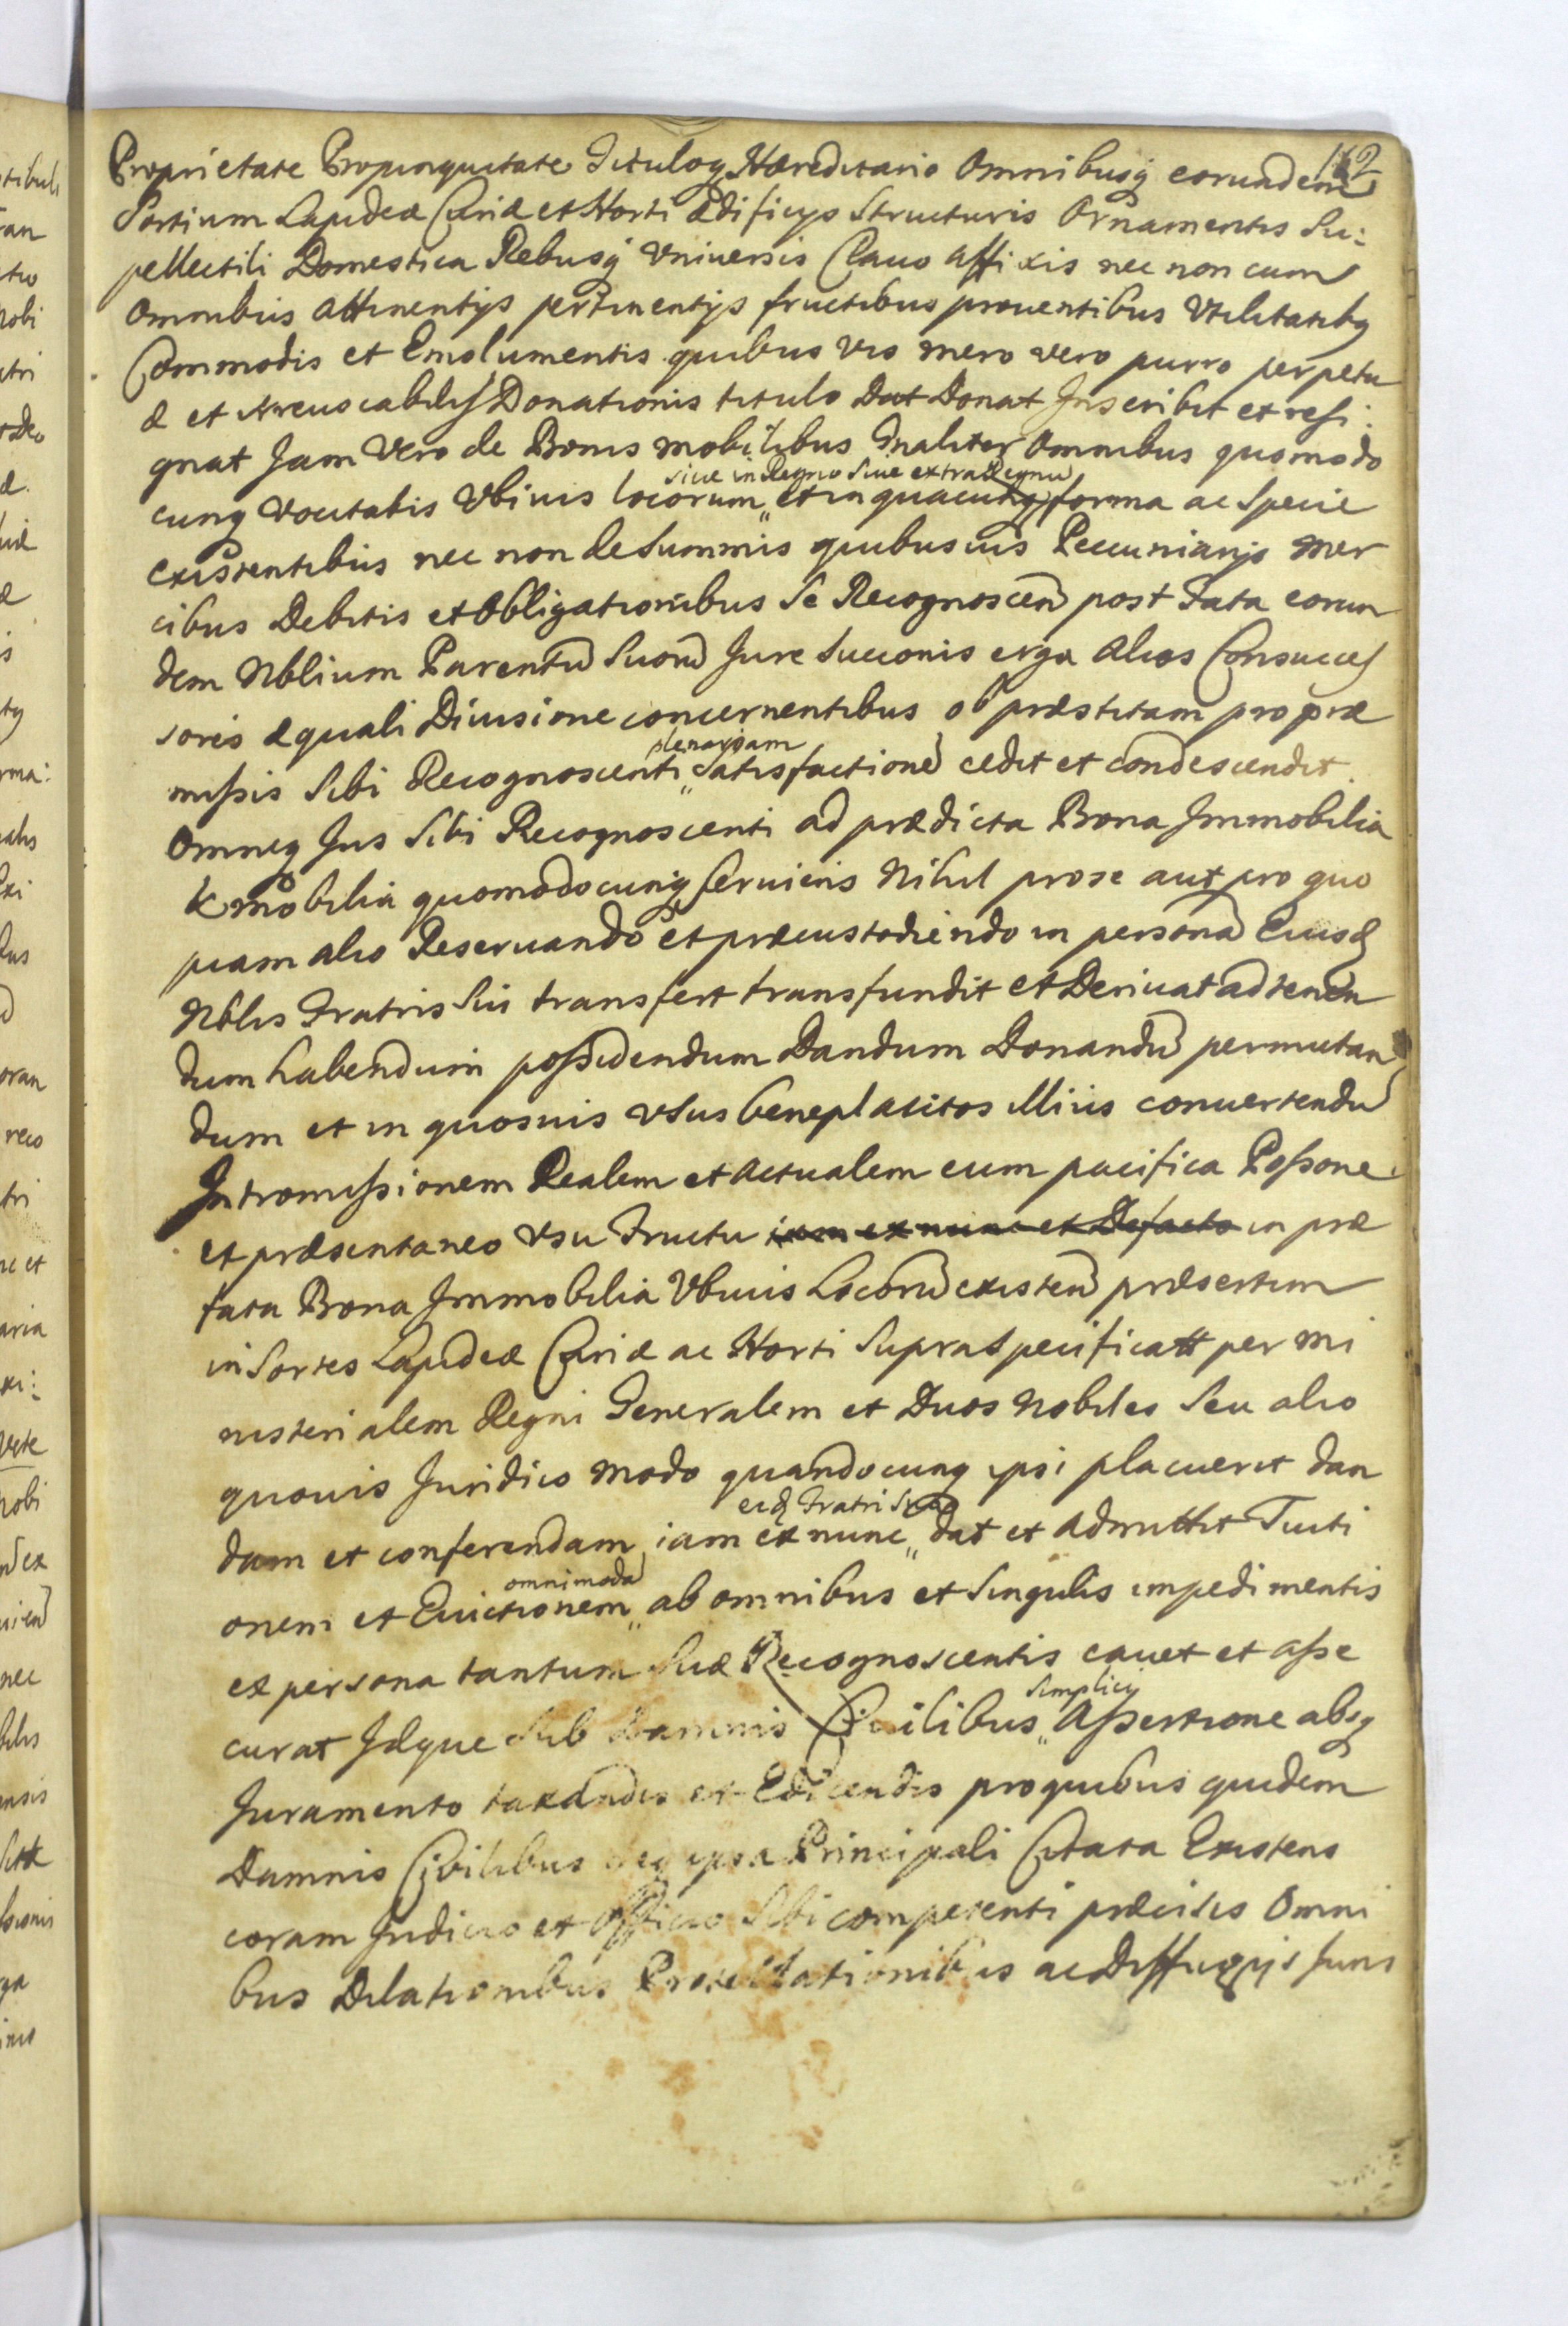 162
Proprietate Propinquitate Tituloq Hæreditario Omnibusq eorundem
Sortium Lapideæ Curiæ et Horti Ædificijs Structuris Ornamentis Su:
pellectili Domestica Rebusq Vniuersis Clauo affixis nec non cum
Omnibus attinentijs pertinentijs fructibus prouentibus Vtilitatibq
Commodis et Emolumentis quibus vis mero vero purro perpetu
æ et irreuocabilis Donationis titulo Dat Donat Inscribit et resi:
gnat Jam Vero de Bonis mobilibus Gnaliter Omnibus quomodo
cunq vocitatis Vbiuis locorum „ et in quacunq forma ac Specie
siue in Regno Siue extra Regnu
existentibus nec non de Summis quibusuis Pecuniarijs mer
cibus Debitis et Obligationibus Se Recognoscen post Fata eorun
dem Nblium Parentu Suoru Jure Succonis erga Alios Consucces
soris æquali Diuisione concernentibus ob præstitam pro præ
missis Sibi Recognoscenti „ Satisfactione cedit et condescendit.
plenariam
Omneq Jus Sibi Recognoscenti ad prædicta Bona Immobilia
& mobilia quomodocunq seruiens Nihil pro se aut pro quo
piam alio Reseruando et præcustodiendo in persona Eiusd
Nblis Fratris Sui transfert transfundit et Deriuat ad tenen
dum habendum possidendum Dandum Donandu permutan
dum et in quosuis vsus beneplacitos Illius conuertendu
Intromissionem Realem et Actualem cum pacifica Possone
et præsentaneo vsu Fructu iam ex nunc et Defacto in præ
fata Bona Immobilia Vbiuis Locoru existen præsertim
in Sortes Lapideæ Curiæ ac Horti Supra Specificatt per mi
nisterialem Regni Generalem et Duos Nobiles Seu alio
quouis Juridico modo quandocunq ipsi placuerit dan
dam et conferendam iam ex nunc „ dat et Admittit Tuiti
eid Fratri Suo
onem et Euictionem „ ab omnibus et Singulis impedimentis
omnimoda
ex persona tantum Suæ Recognoscentis cauet et asse
curat Idque Sub Damnis Ciuilibus „ Assertione absq
simplici
Juramento taxandis et Edicendis pro quibus quidem
Damnis Ciuilibus req ipsa Principali Citata Existens
coram Judicio et Officio Sibi competenti præcisis Omni
bus Dilationibus Protestationibus ac Diffugijs Juris